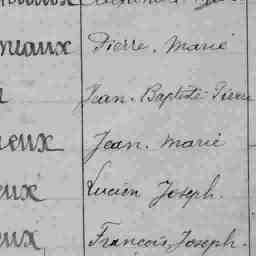 niaux Pierre. Marie
Jean. Baptiste Pierre
eux Jean. Marie
eux Lucien Joseph.
eux François, Joseph.